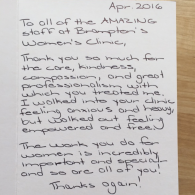 Apr. 2016
To all of the AMAZING
staff at Brampton's
Women's Clinic,
Thank you so much for
the care, kindness,
compassion, and great
professionalism with
which you treated me.
I walked into your clinic
feeling anxious and heavy,
but walked out feeling
empowered and free.
The work you do for
women is incredibly
important and special-
and so are all of you!
Thanks again!